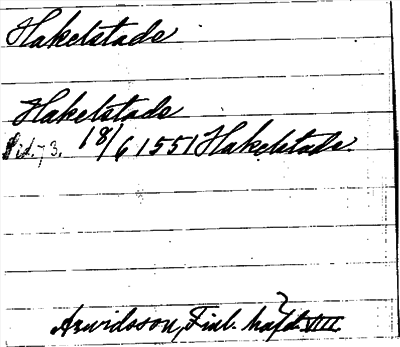 Hakelstads
Hakelstads
Sid. 73. 18/6 1551 Hakelstads.
Arwidsson, Finl. häfd. VIII